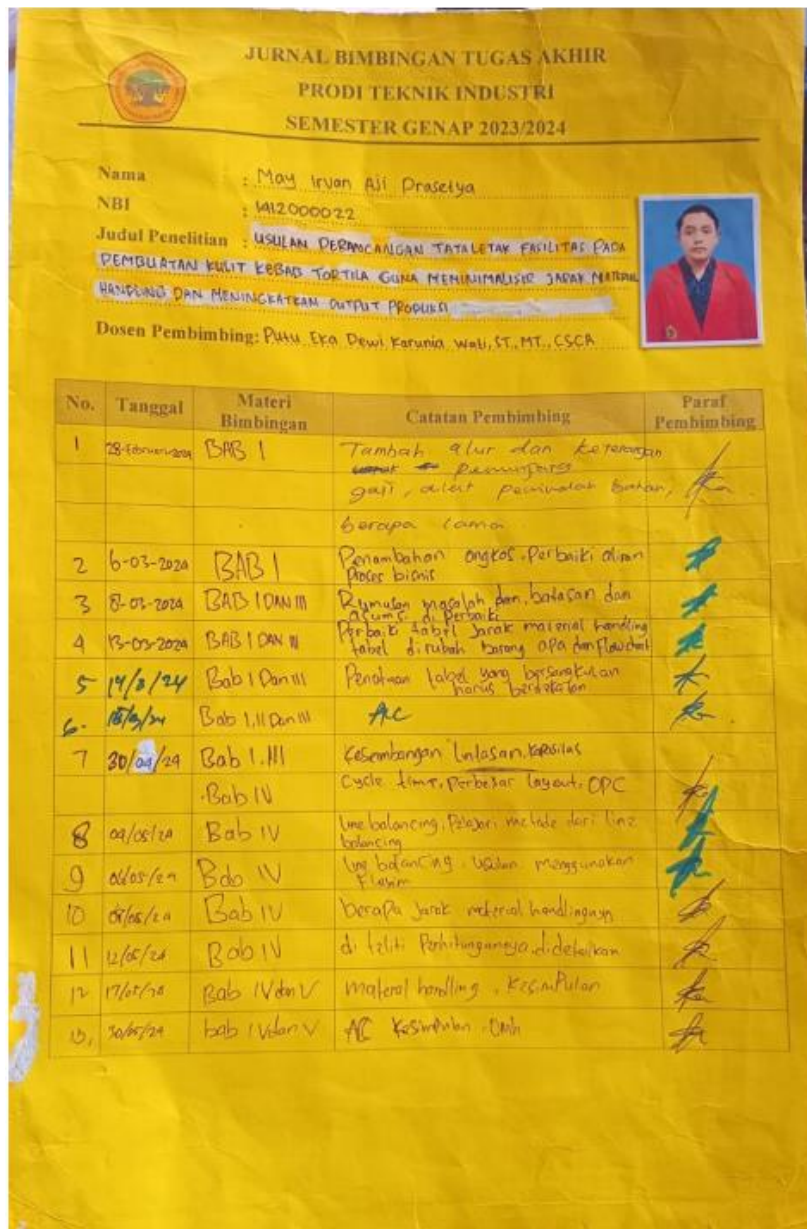 JURNAL BIMBINGAN TUGAS AKHIR
PRODI TEKNIK INDUSTRI
SEMESTER GENAP 2023/2024
Nama : May Irvan Aji Prasetya
NBI : 1412000022
Judul Penelitian : USULAN PERANCANGAN TATALETAK FASILITAS PADA
PEMBUATAN KULIT KEBAB TORTILA GUNA MEMINIMALISIR JARAK MATERIAL
HANDLING DAN MENINGKATKAN OUTPUT PRODUKSI
Dosen Pembimbing: Putu Eka Dewi Karunia Wati, ST., MT., CSCA
No. Tanggal Materi Bimbingan Catatan Pembimbing Paraf Pembimbing
1 28-Februari-2024 BAB I Tambah alur dan keterangan
gaji, alat pemindah bahan,
berapa lama
2 6-03-2024 BAB I Penambahan ongkos. Perbaiki aliran
Proses bisnis
3 8-03-2024 BAB I DAN III Rumusan masalah dan batasan dan
asumsi di Perbaiki
4 13-03-2024 BAB I DAN III Perbaiki tabel Jarak material handling
tabel dirubah barang apa dan Flowchart
5 14/3/24 Bab I Dan III Penataan tabel yang bersangkutan
harus berdekatan
6. 18/3/24 Bab I, II Dan III ACC
7 30/04/24 Bab I, III Kesembangan Lintasan, Kapasitas
Bab IV Cycle time, Perbesar layout, OPC
8 04/05/24 Bab IV Line balancing, Pelajari metode dari line
balancing
9 06/05/24 Bab IV Line balancing. Usulan menggunakan
Flexsim
10 08/05/24 Bab IV berapa Jarak material handlingnya
11 12/05/24 Bab IV di teliti Perhitungannya, didetailkan
12 17/05/24 Bab IV dan V material handling, Kesimpulan
13, 30/05/24 bab IV dan V ACC Kesimpulan